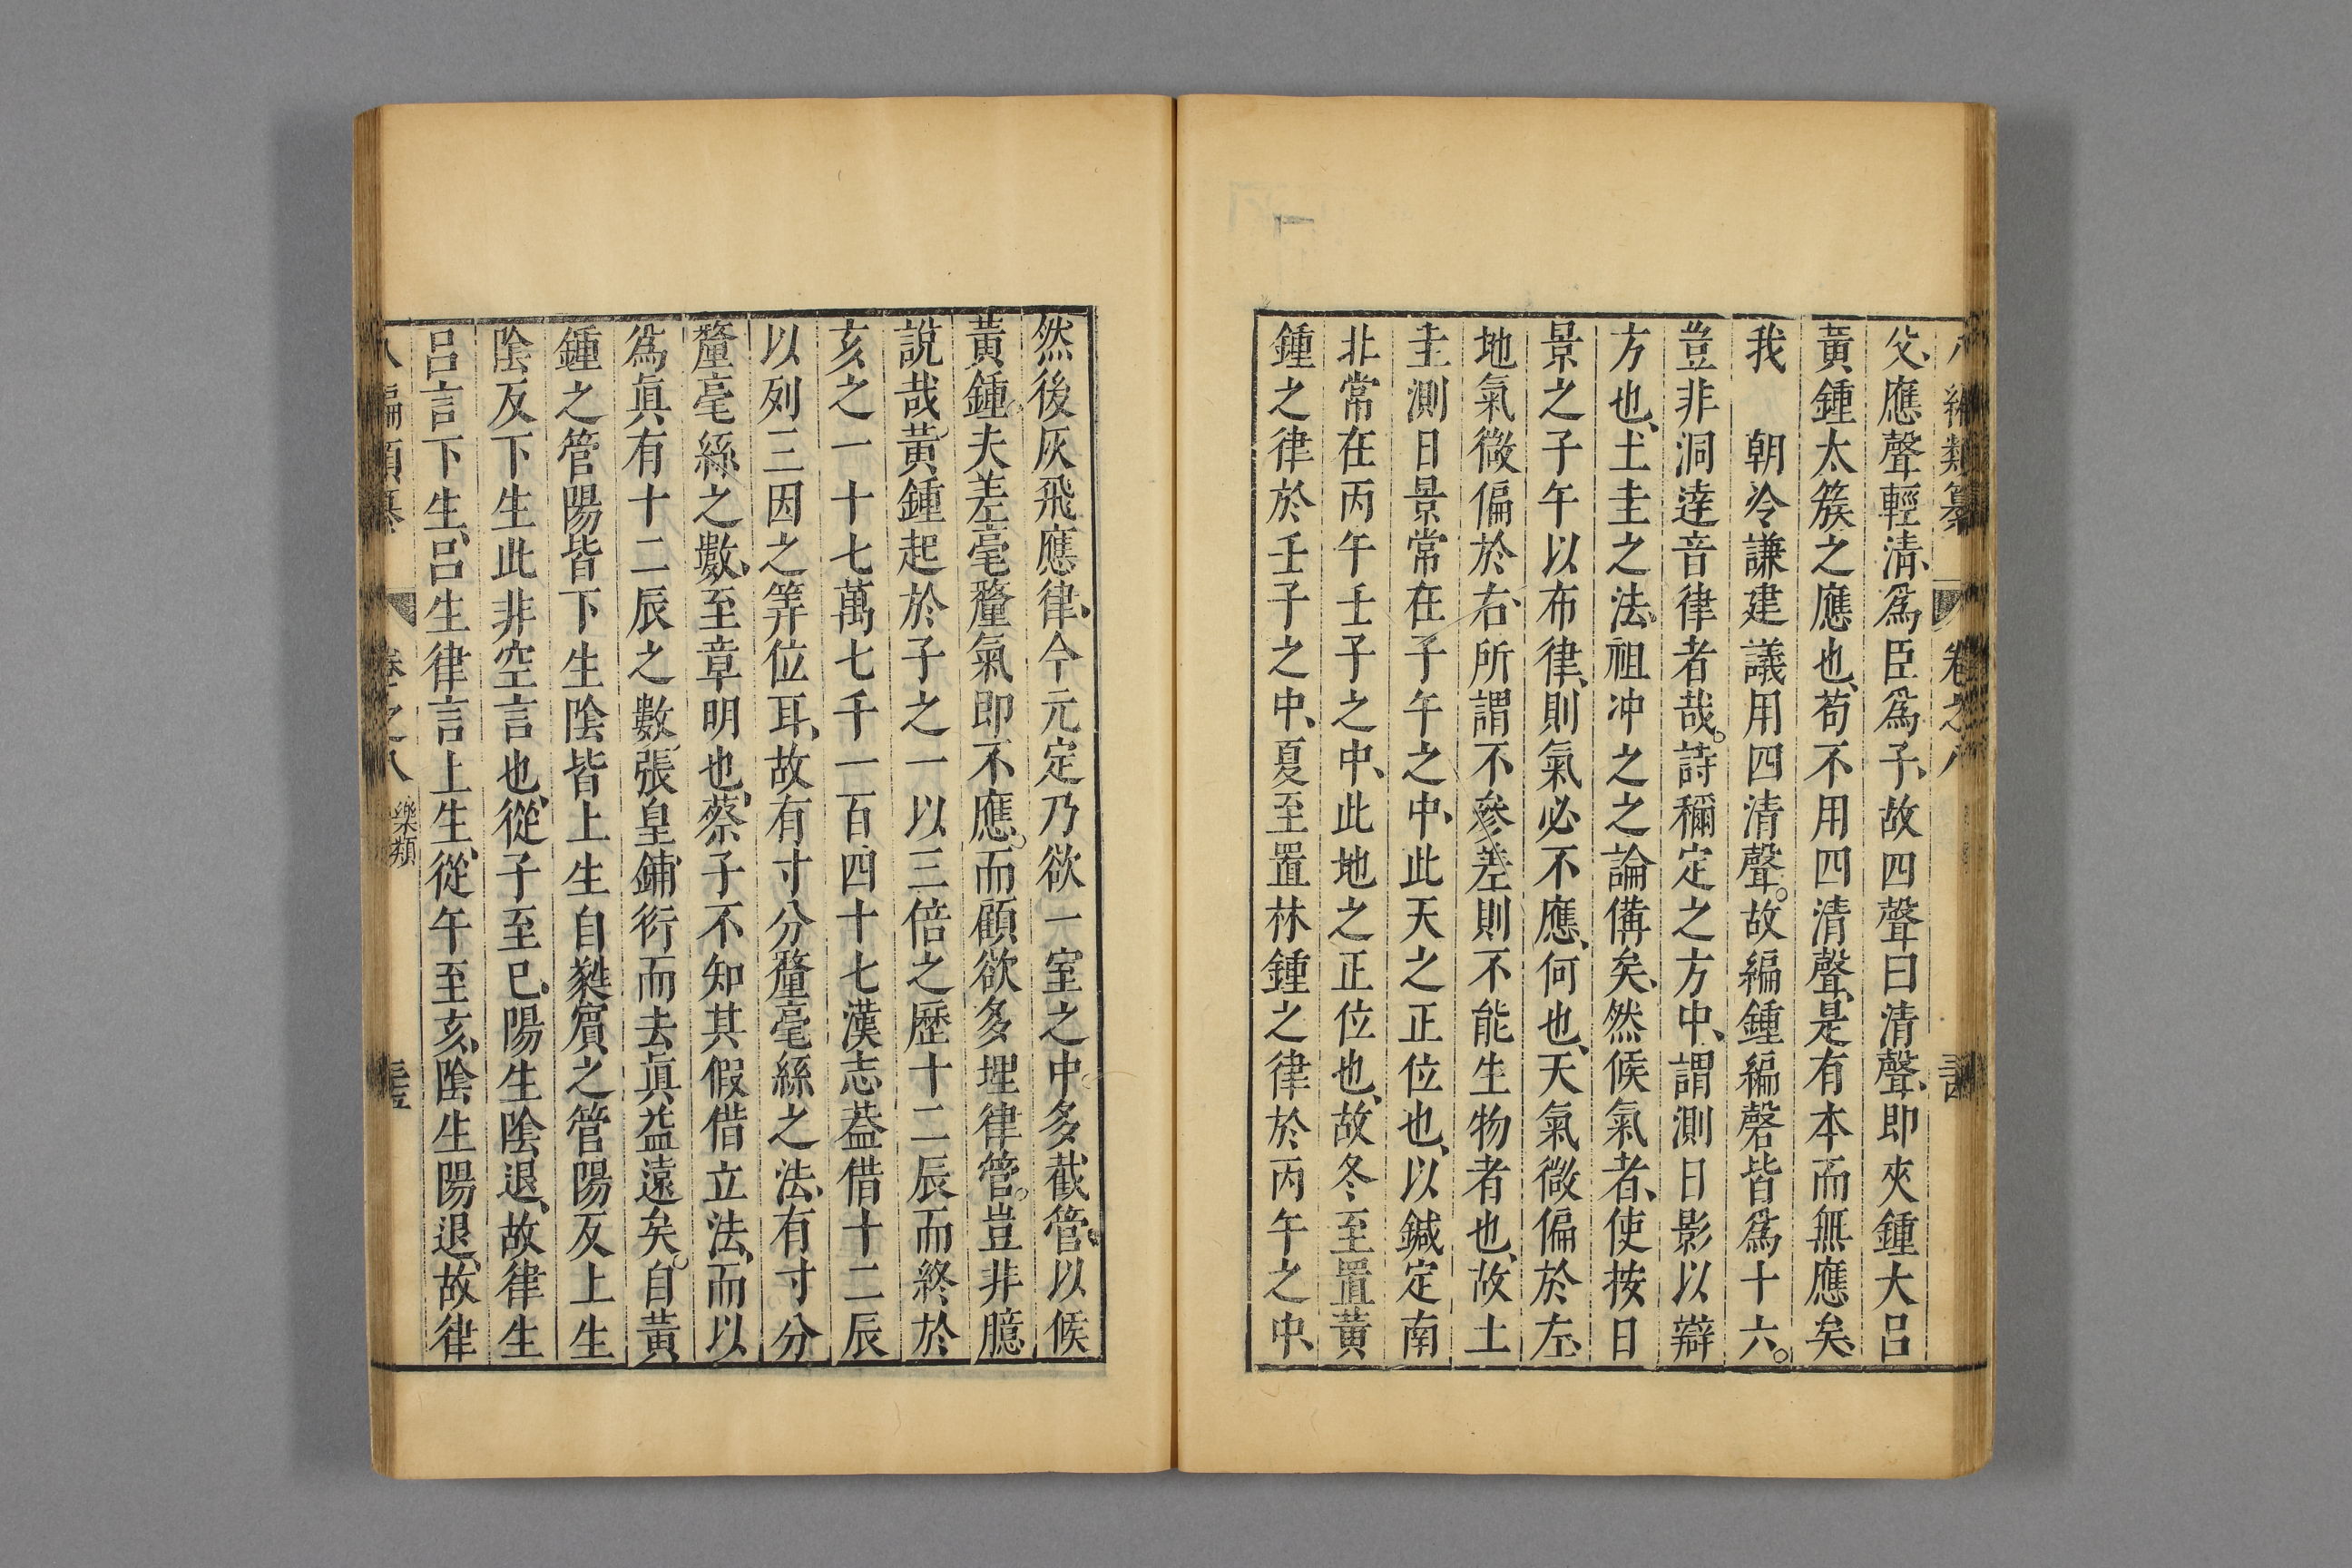 八編類纂 卷之八
父、應聲輕清、爲臣爲子、故四聲曰清聲、即夾鍾大呂
黃鍾太簇之應也、苟不用四清聲、是有本而無應矣、
我　朝冷謙建議用四清聲。故編鍾編磬皆爲十六。
豈非洞達音律者哉。詩稱定之方中、謂測日影以辯
方也、土圭之法、祖冲之之論備矣、然候氣者、使按日
景之子午以布律、則氣必不應、何也、天氣微偏於左、
地氣微偏於右、所謂不參差則不能生物者也、故土
圭測日景常在子午之中、此天之正位也、以鍼定南
北常在丙午壬子之中、此地之正位也、故冬至置黃
鍾之律於壬子之中、夏至置林鍾之律於丙午之中、
然後灰飛應律、今元定乃欲一室之中多截管、以候
黃鍾。夫差毫釐氣即不應。而顧欲多埋律管。豈非臆
說哉、黃鍾起於子之一以三倍之歷十二辰而終於
亥之一十七萬七千一百四十七漢志葢借十二辰
以列三因之筭位耳、故有寸分釐毫絲之法、有寸分
釐毫絲之數、至章明也、蔡子不知其假借立法、而以
爲眞有十二辰之數、張皇鋪衍而去眞益遠矣。自黃
鍾之管陽皆下生陰皆上生自蕤賓之管陽反上生
陰反下生此非空言也、從子至巳、陽生陰退、故律生
呂言下生、呂生律言上生、從午至亥、陰生陽退、故律
八編類纂 卷之八 樂類 三五